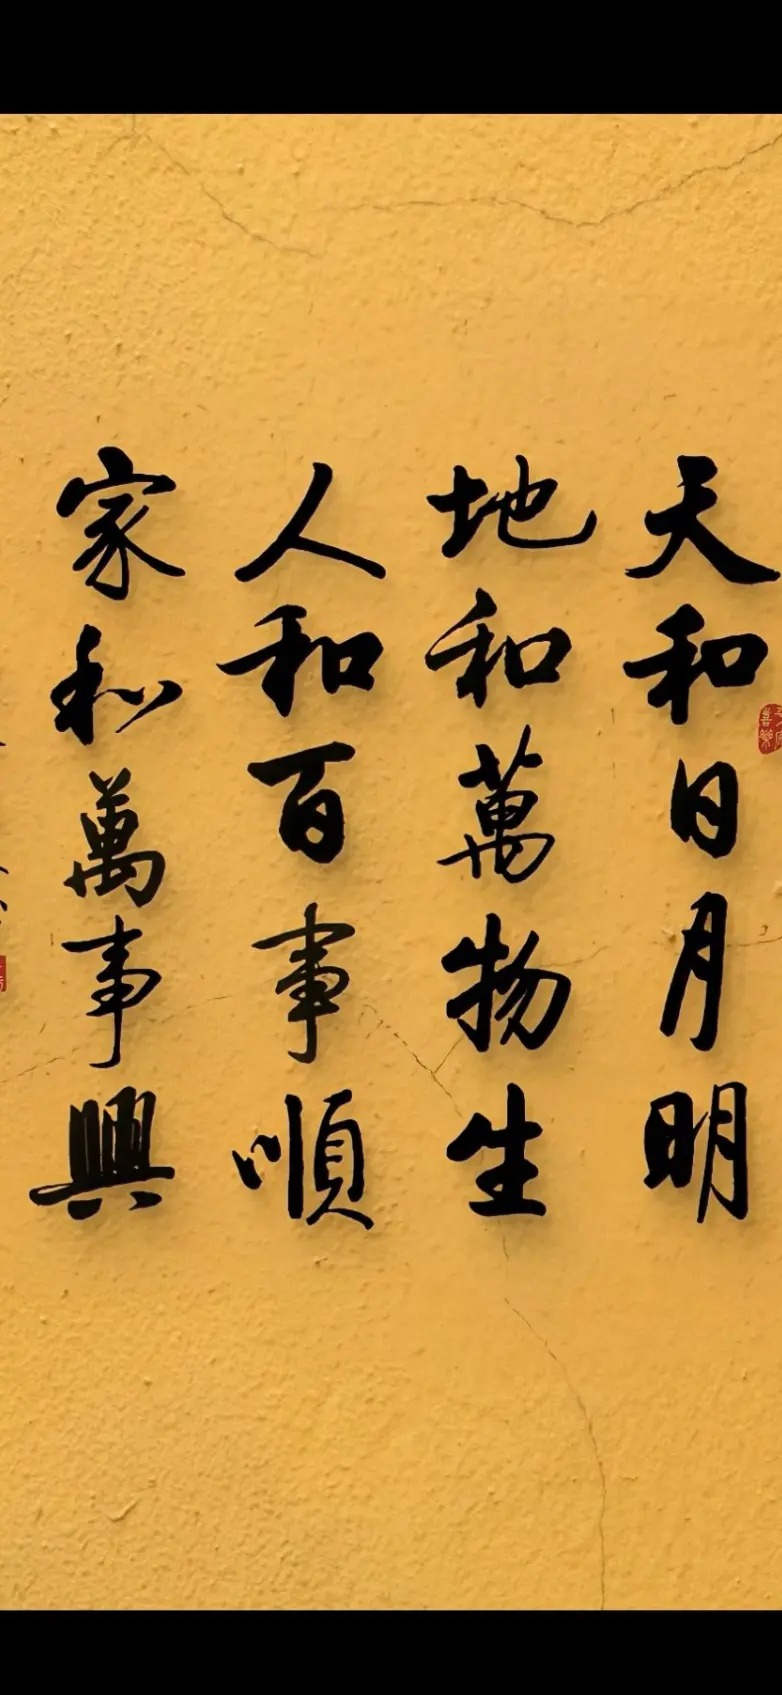 天和日月明
地和萬物生
人和百事順
家和萬事興
喜樂